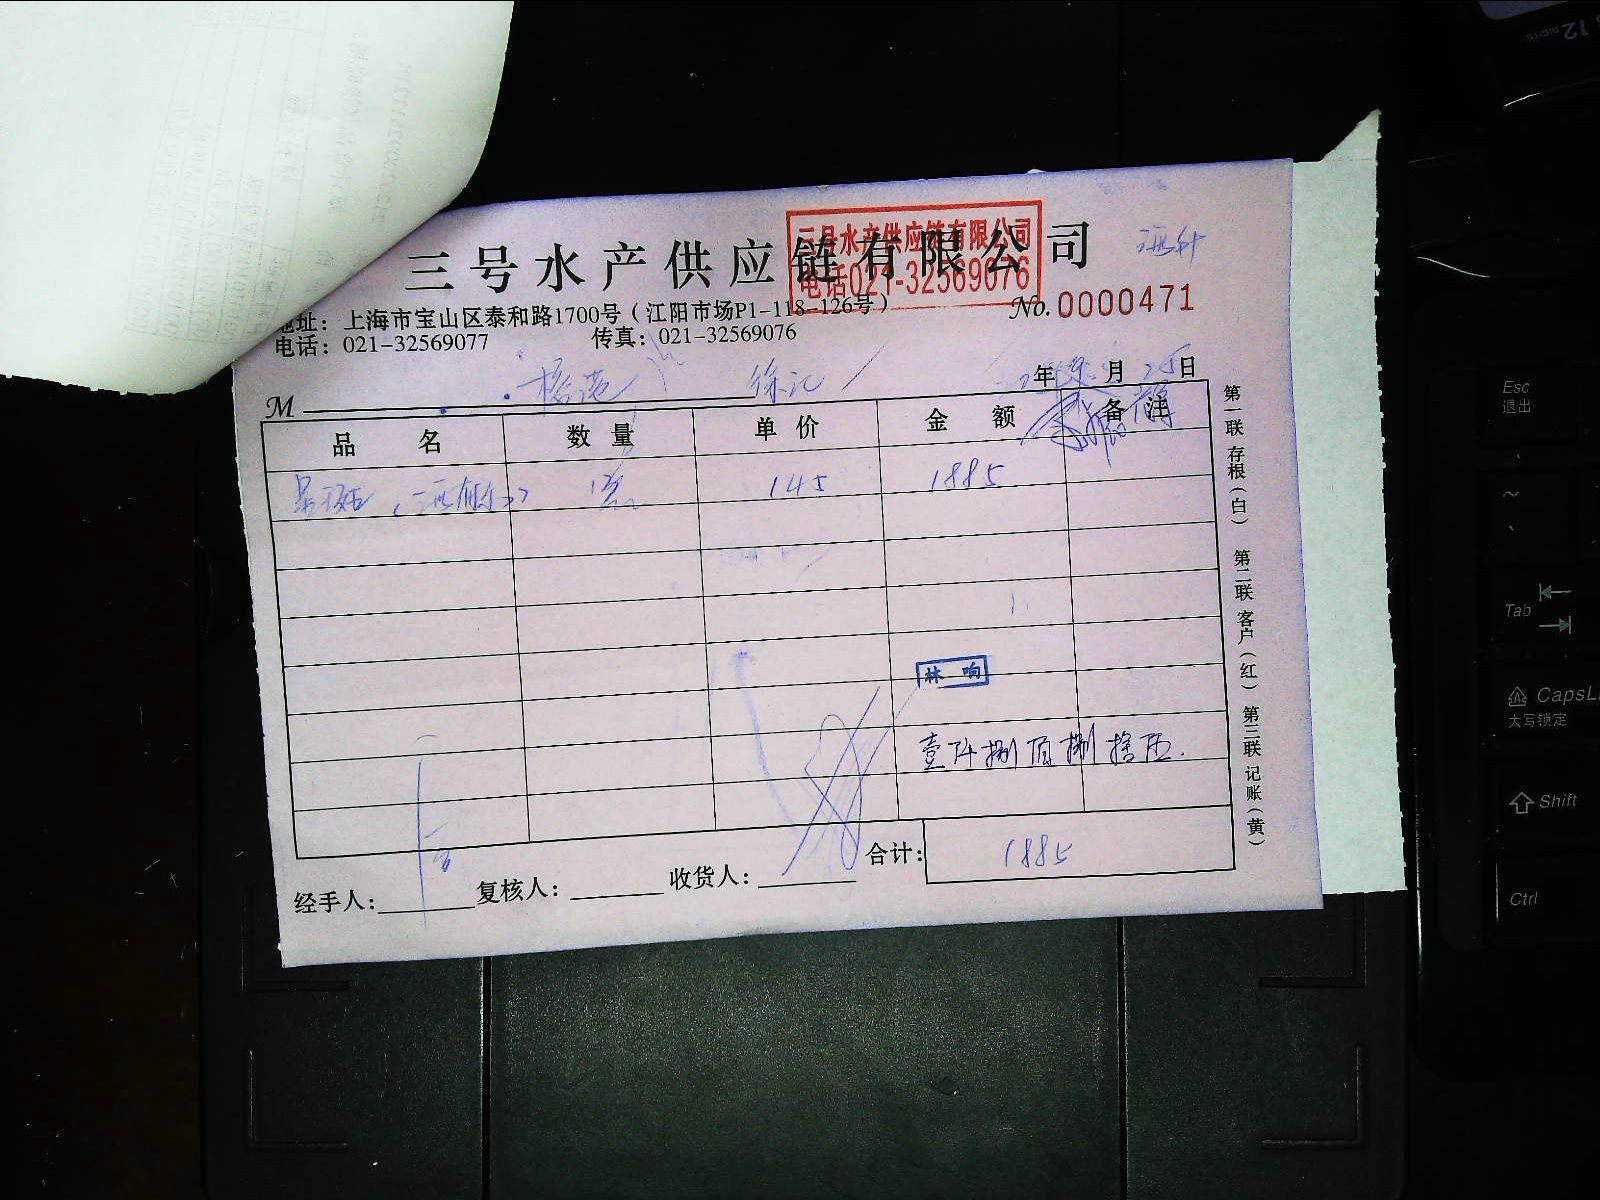 三号水产供应链有限公司
三号水产供应链有限公司
电话021-32569076
地址：上海市宝山区泰和路1700号（江阳市场P1-118-126号）
No. 0000471
电话：021-32569077 传真：021-32569076
M 徐汇 年 月 25日
品名 数量 单价 金额 备注
145 1885
林响
壹仟捌佰捌拾伍.
合计： 1885
经手人： 复核人： 收货人：
第一联 存根（白） 第二联 客户（红） 第三联 记账（黄）
12
DIGITS
Esc
退出
~
Tab
CapsL
大写锁定
Shift
Ctrl